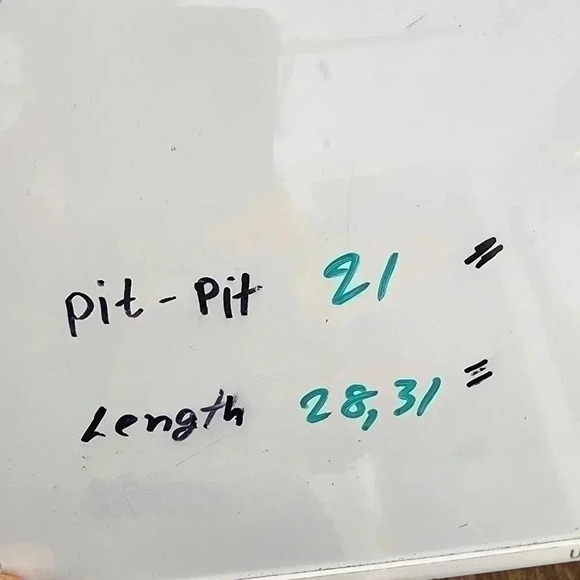 Pit - Pit 21 "
Length 28,31 "